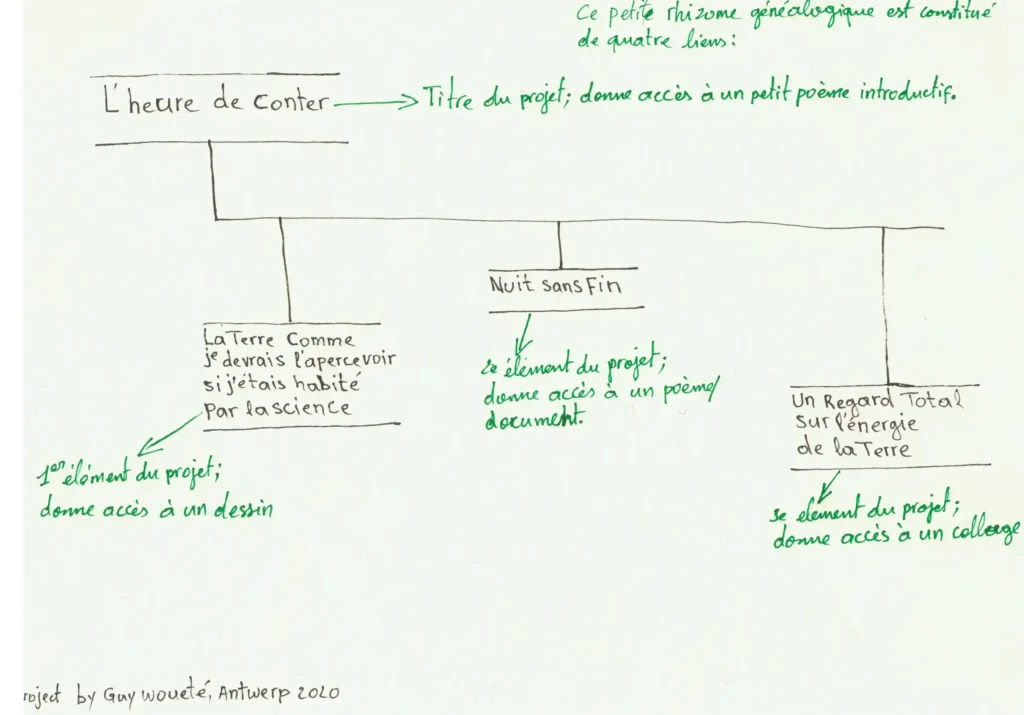 Ce petite rhizome généalogique est constitué
de quatre liens:
L'heure de conter
Titre du projet; donne accès à un petit poème introductif.
La Terre Comme
je devrais l'apercevoir
si j'étais habité
Par la science
1er élément du projet;
donne accès à un dessin
Nuit sans Fin
2e élément du projet;
donne accès à un poème/
document.
Un Regard Total
sur l'énergie
de la Terre
3e element du projet;
donne accès à un collage
roject by Guy woueté, Antwerp 2020